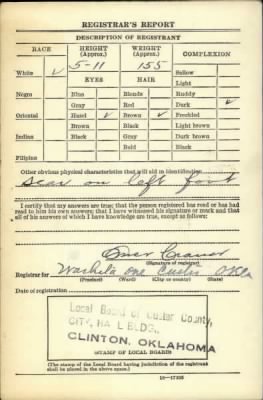 REGISTRAR'S REPORT
DESCRIPTION OF REGISTRANT
RACE
HEIGHT (Approx.)
WEIGHT (Approx.)
COMPLEXION
5-11
155
White ✓
Sallow
EYES
HAIR
Light
Negro
Blue
Blonde
Ruddy
Gray
Red
Dark ✓
Oriental
Hazel ✓
Brown ✓
Freckled
Brown
Black
Light brown
Indian
Black
Gray
Dark brown
Bald
Black
Filipino
Other obvious physical characteristics that will aid in identification
Scar on left foot
I certify that my answers are true; that the person registered has read or has had
read to him his own answers; that I have witnessed his signature or mark and that
all of his answers of which I have knowledge are true, except as follows:
(Signature of registrar)
Registrar for Washita one Custer Okla
(Precinct) (Ward) (City or county) (State)
Date of registration
Local Board of Custer County,
CITY HALL BLDG.,
CLINTON, OKLAHOMA
STAMP OF LOCAL BOARD
(The stamp of the Local Board having jurisdiction of the registrant
shall be placed in the above space.)
16—17105